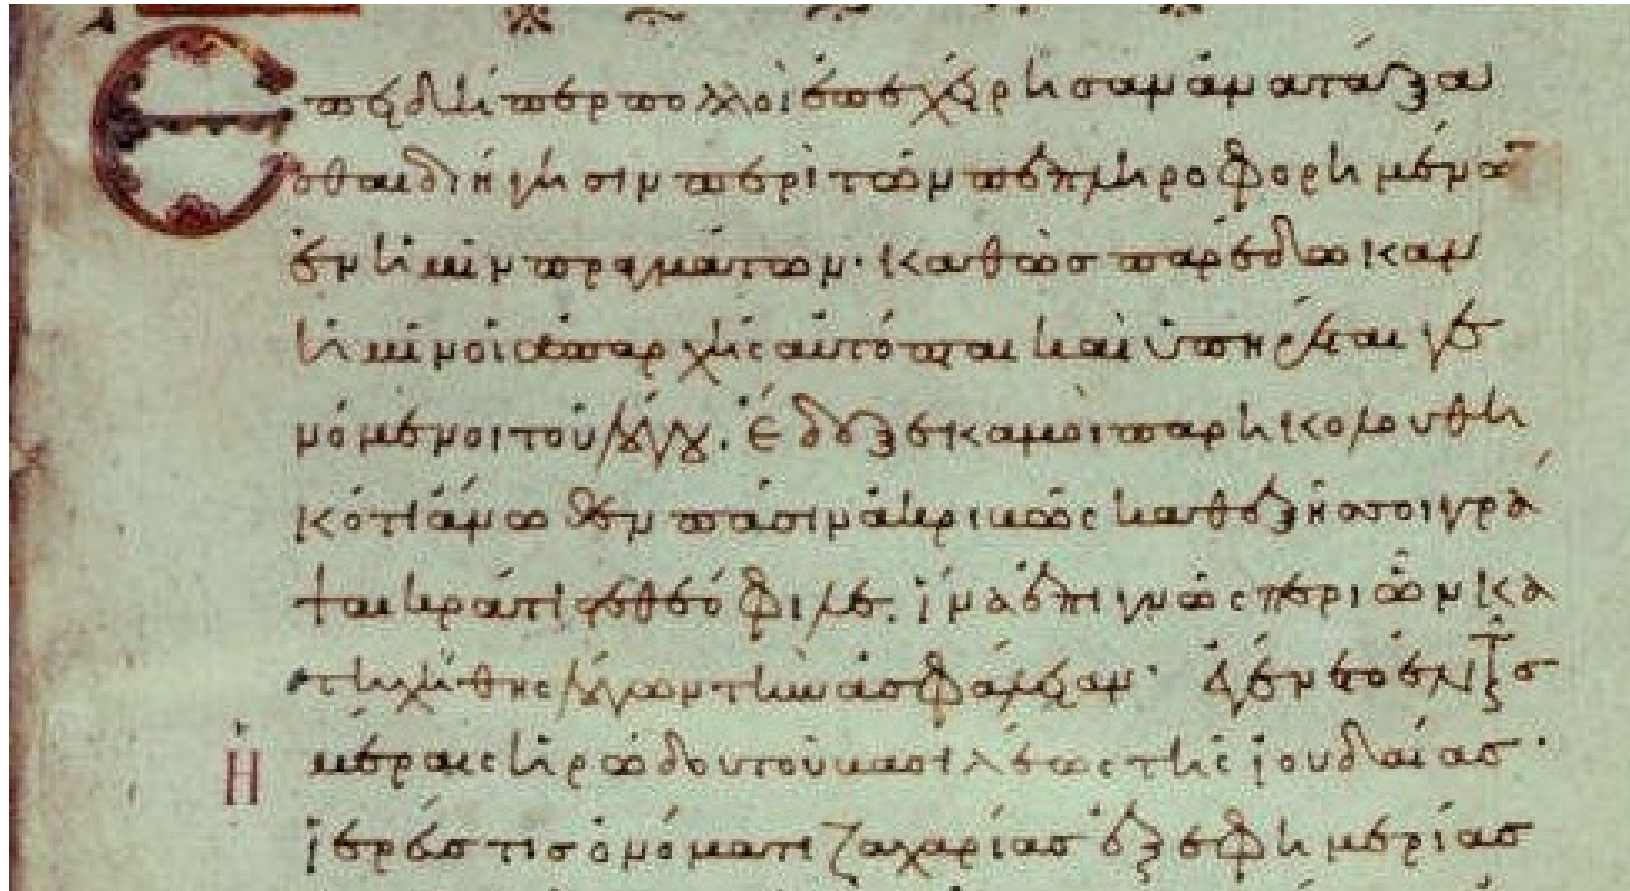 Ἐπειδήπερ πολλοὶ ἐπεχείρησαν ἀνατάξα
σθαι διήγησιν περὶ τῶν πεπληροφορημένω
ἐν ἡμῖν πραγμάτων· καθὼς παρέδωκαν
ἡμῖν οἱ ἀπαρχῆς αὐτόπται καὶ ὑπηρέται γε
νόμενοι τοῦ λόγου. ἔδοξε καμοὶ παρηκολουθη
κότι ἄνωθεν πᾶσιν ἀκριβῶς καθεξῆς σοι γρά
ψαι κράτιστε θεόφιλε. ἵνα ἐπιγνῶς περὶ ὧν κα
τηχήθης λόγων τὴν ἀσφάλειαν· ἐγένετο ἐν ταῖς
Ἡ
μέραις ἡρώδου τοῦ βασιλέως τῆς ἰουδαίας·
ἱερεύς τις ὀνόματι ζαχαρίας ἐξ ἐφημερίας